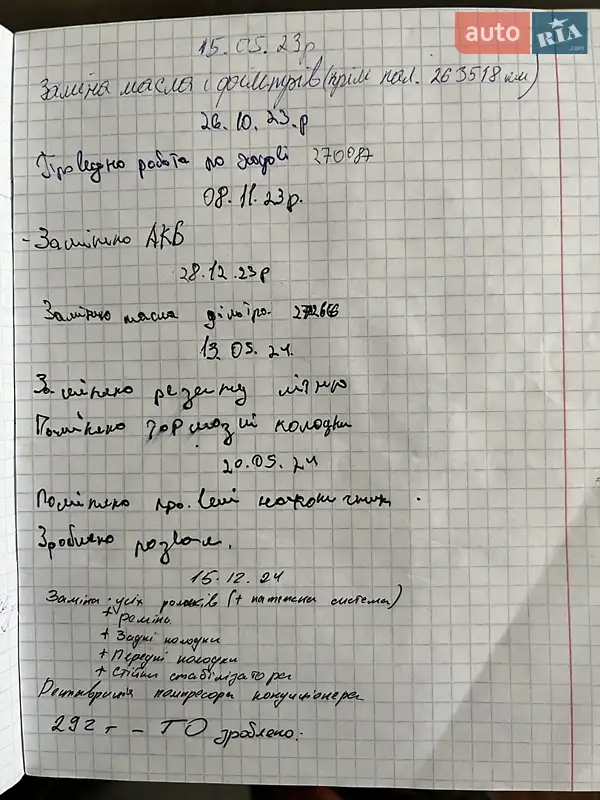 auto RIA .com
15.05.23р
Заміна масла і фільтрів (крім пал. 263518 км)
26.10.23.р
Проведено робота по ходові 270087
08.11.23р.
- Замінено АКБ
28.12.23р
Замінено масла фільтра.
13.05.24.
Замінено резину літню
Поміняно тормозні колодки
20.05.24
Поміняно наконечник .
Зроблено розвал.
15.12.24
Заміна усіх роликів (+ натяжна система)
+ ремінь
+ Задні колодки
+ Передні колодки
+ Стійки стабілізатора
Реставрація компресора кондиціонера
292 т - ТО зроблено.